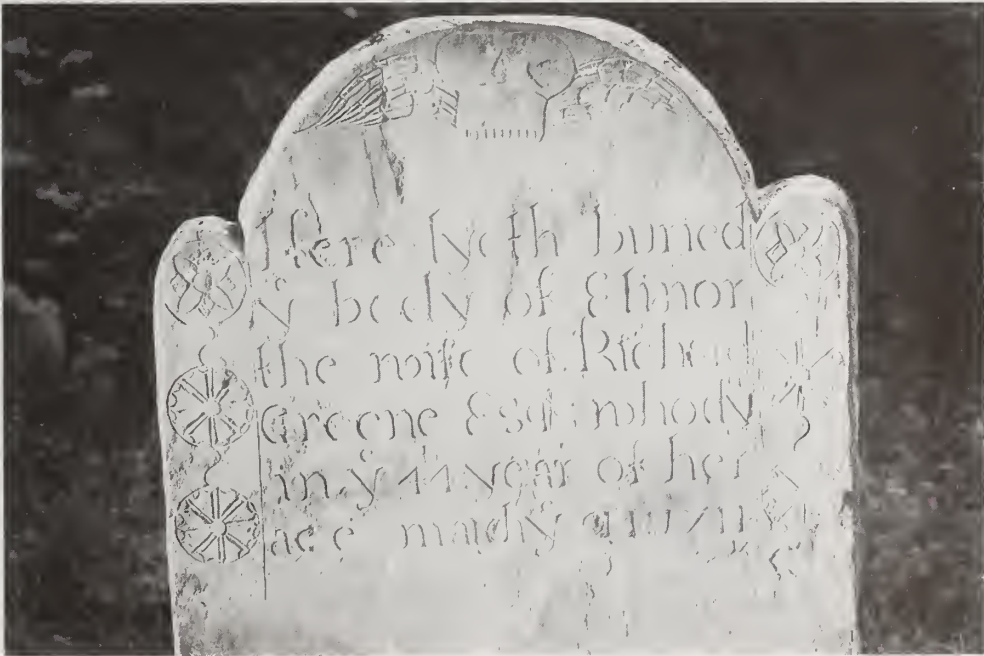 Here lyeth buried
yͤ body of Elinor
the wife of Richard
Greene Esqr who dy
in yͤ 44 year of her
age march yͤ